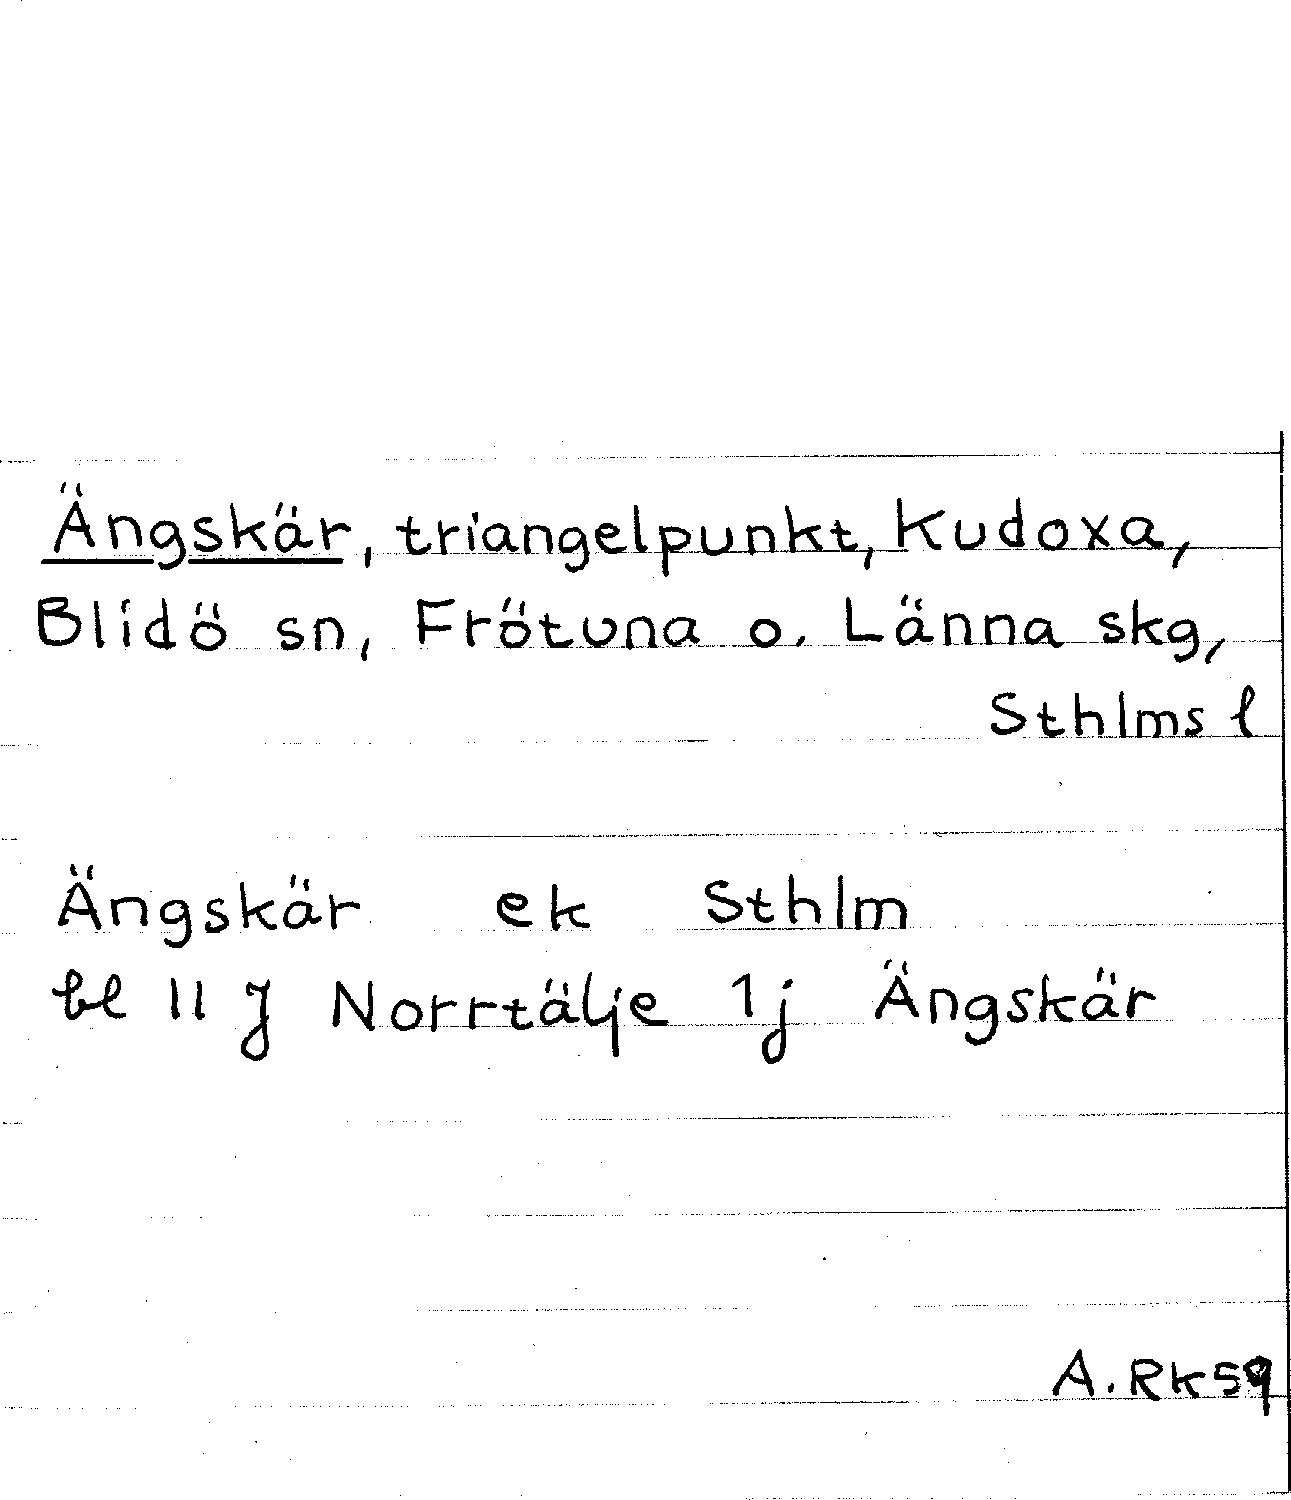 Ängskär, triangelpunkt, Kudoxa,
Blidö sn, Frötuna o. Länna skg,
Sthlms l
Ängskär ek Sthlm
bl 11 J Norrtälje 1j Ängskär
A. Rk 59